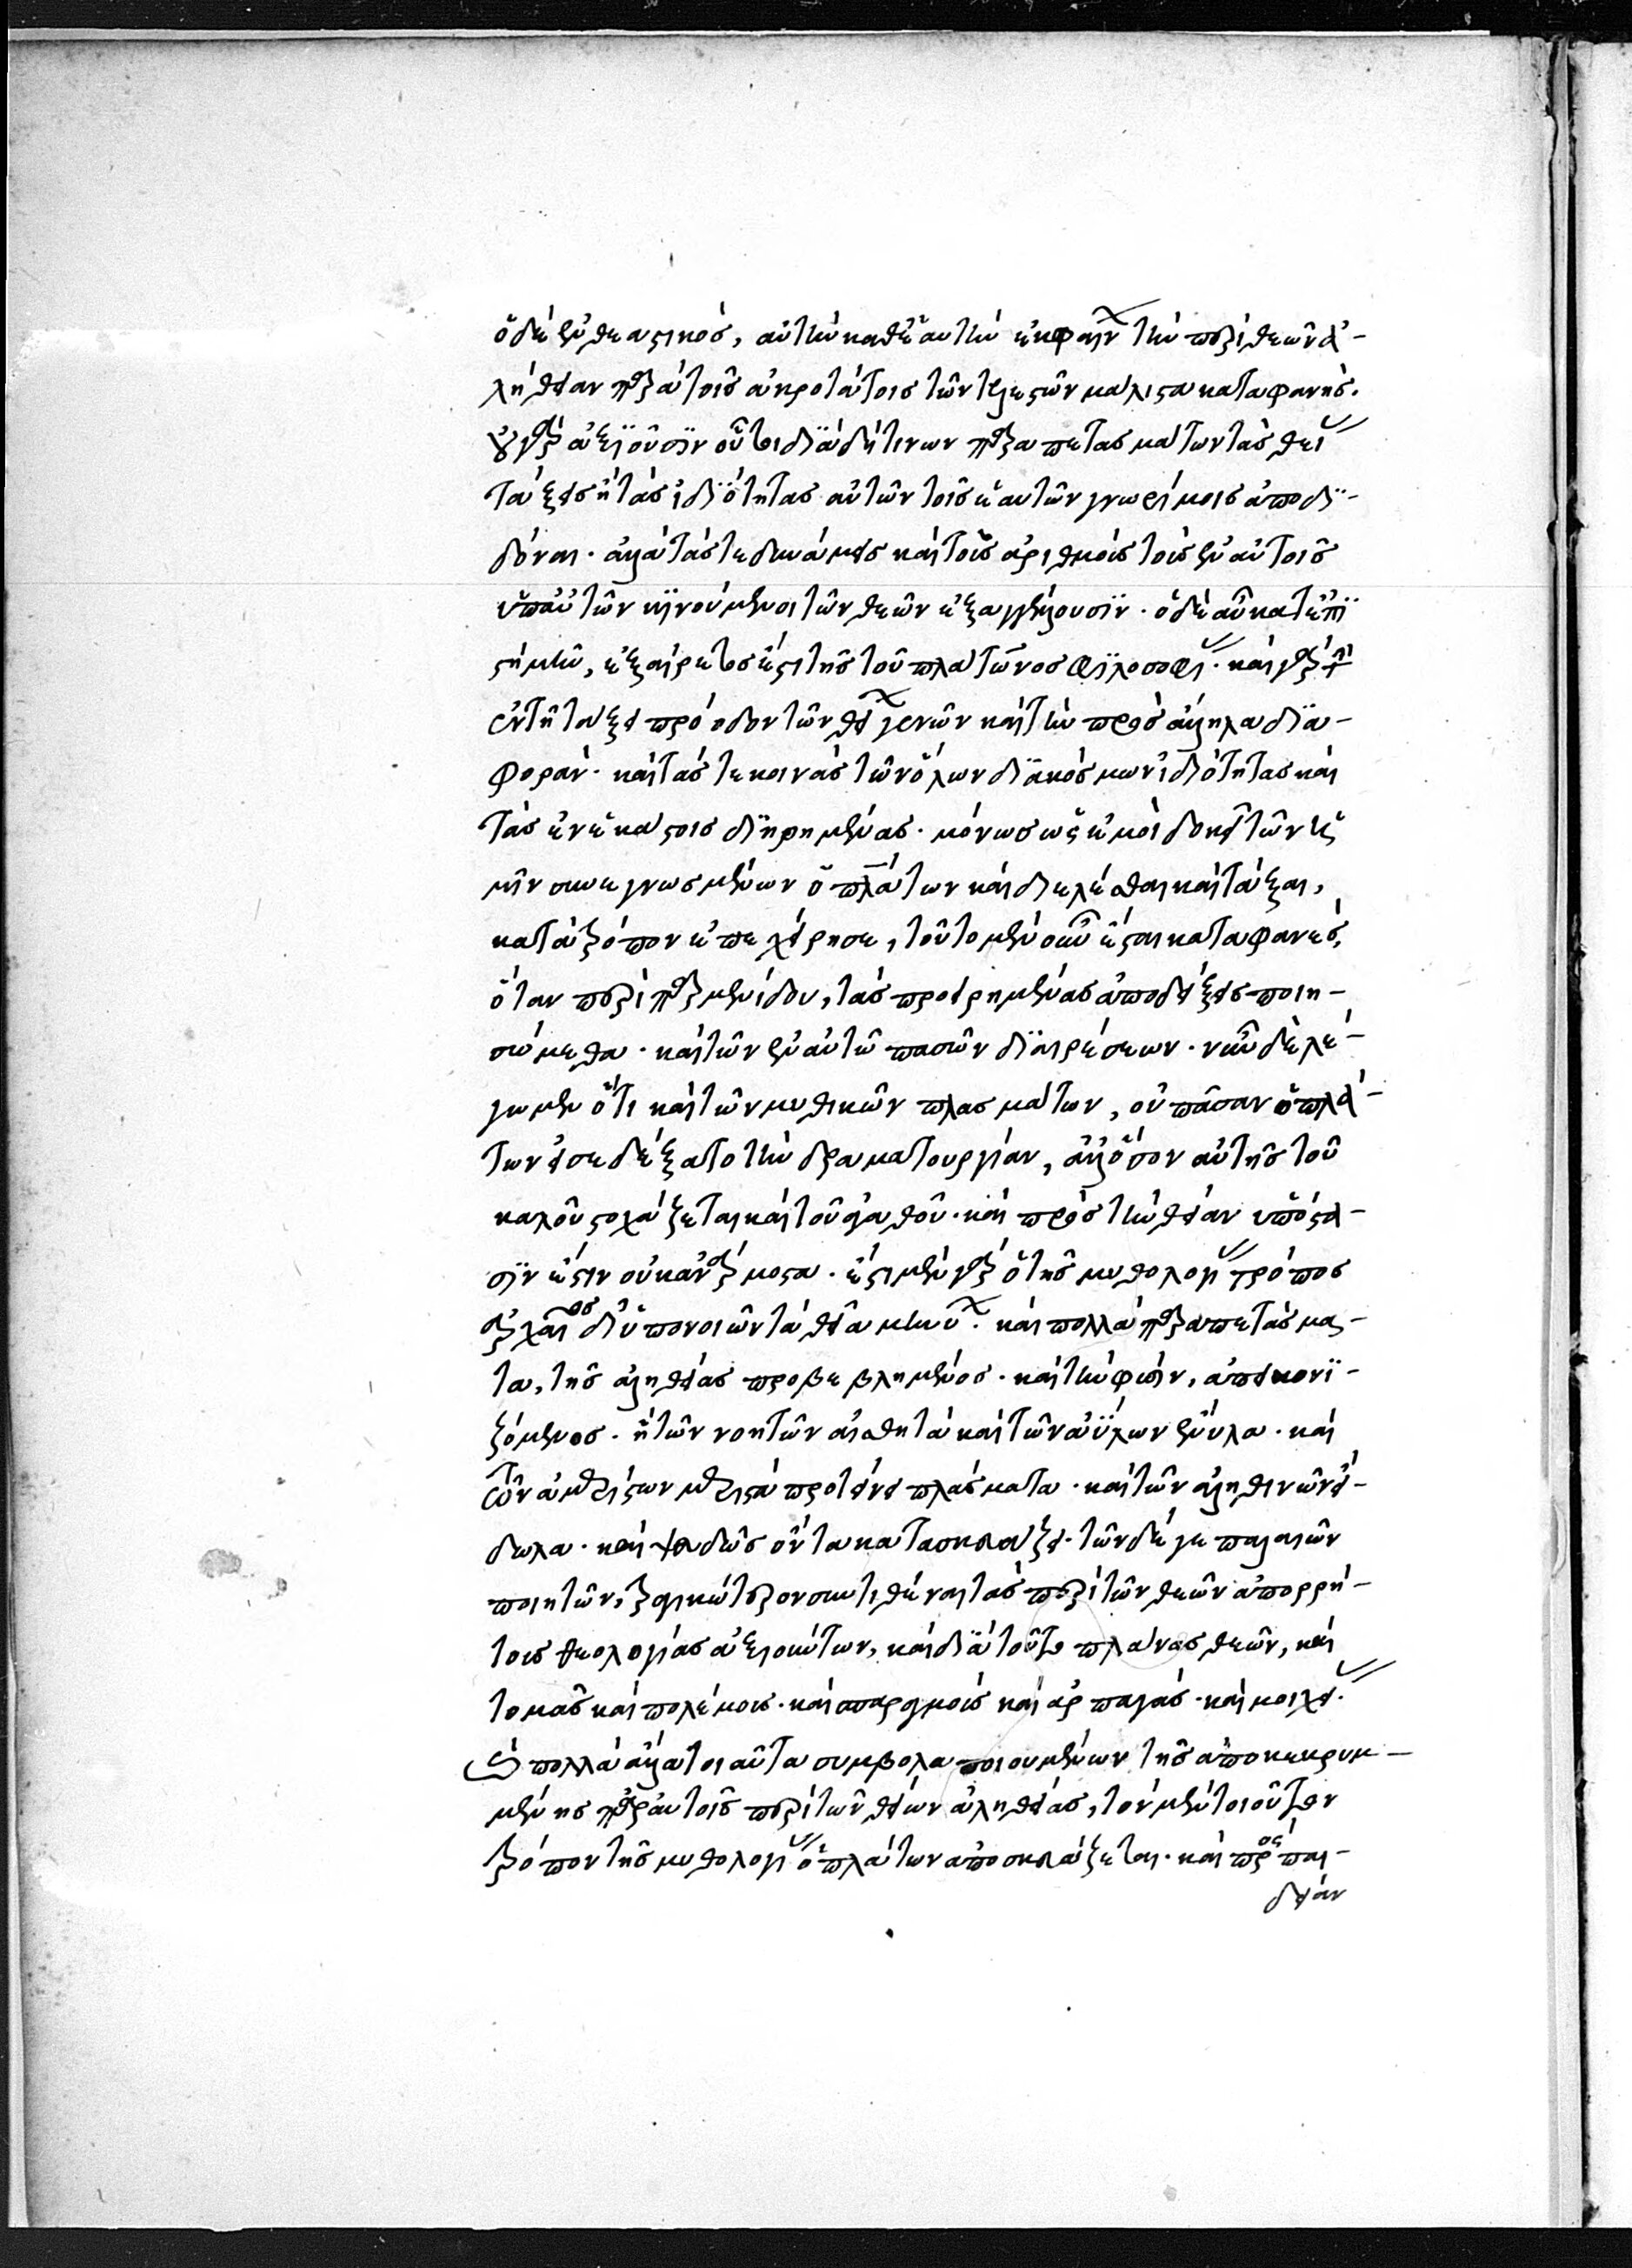 ὁ δὲ ἐνθεαστικός, αὐτὴν καθ' ἑαυτὴν ἐκφαίνων τὴν περὶ θεῶν ἀ-
λήθειαν παρὰ τοῖς ἀκροτάτοις τῶν τελεστῶν μάλιστα καταφανής.
οὐ γὰρ ἀξιοῦσιν οὗτοι διὰ δή τινων παραπετασμάτων τὰς θείας
τάξεις ἢ τὰς ἰδιότητας αὐτῶν τοῖς ἑαυτῶν γνωρίμοις ἀποδι-
δόναι. ἀλλὰ τάς τε δυνάμεις καὶ τοὺς ἀριθμοὺς τοὺς ἐν αὐτοῖς
ὑπ' αὐτῶν κινούμενοι τῶν θεῶν ἐξαγγέλλουσιν. ὁ δὲ αὖ κατ' ἐπι
στήμην, ἐξαίρετός ἐστι τῆς τοῦ πλάτωνος φιλοσοφίας. καὶ γὰρ τὴν
ἐν τῇ τάξει πρόοδον τῶν θείων γενῶν καὶ τὴν πρὸς ἄλληλα δια-
φοράν. καὶ τάς τε κοινὰς τῶν ὅλων διακόσμων ἰδιότητας καὶ
τὰς ἐν ἑκάστοις διῃρημένας. μόνος ὡς ἐμοὶ δοκεῖ τῶν ἡ
μῖν συνεγνωσμένων ὁ πλάτων καὶ διελέσθαι καὶ τάξαι,
κατὰ τρόπον ἐπεχείρησε, τοῦτο μὲν οὖν ἔσται καταφανές,
ὅταν περὶ παρμενίδου, τὰς προειρημένας ἀποδείξεις ποιη-
σώμεθα. καὶ τῶν ἐν αὐτῷ πασῶν διαιρέσεων. νῦν δὲ λέ-
γωμεν ὅτι καὶ τῶν μυθικῶν πλασμάτων, οὐ πᾶσαν ὁ πλά-
των εἰσεδέξατο τὴν δραματουργίαν, ἀλλ' ὅσον αὐτῆς τοῦ
καλοῦ στοχάζεται καὶ τοῦ ἀγαθοῦ. καὶ πρὸς τὴν θείαν ὑπόστα-
σιν ἐστιν οὐκ ἀνάρμοστα. ἔστι μὲν γὰρ ὁ τῆς μυθολογίας τρόπος
ἀρχαῖος δι' ὑπονοιῶν τὰ θεῖα μηνύων. καὶ πολλὰ παραπετάσμα-
τα, τῆς ἀληθείας προβεβλημένος. καὶ τὴν φύσιν, ἀπεικονι-
ζόμενος. ἢ τῶν νοητῶν αἰσθητὰ καὶ τῶν ἀΰλων ἔνυλα. καὶ
τῶν ἀμερίστων μεριστὰ προτείνει πλάσματα. καὶ τῶν ἀληθινῶν εἴ-
δωλα. καὶ ψευδῶς ὄντα κατασκευάζει. τῶν δέ γε παλαιῶν
ποιητῶν, τραγικώτερον συντιθέναι τὰς περὶ τῶν θεῶν ἀπορρή-
τους θεολογίας ἀξιούντων, καὶ διὰ τοῦτο πλάνας θεῶν, καὶ
τομὰς καὶ πολέμους. καὶ σπαραγμοὺς καὶ ἁρπαγάς. καὶ μοιχείας.
καὶ πολλὰ ἄλλα τοιαῦτα σύμβολα ποιουμένων τῆς ἀποκεκρυμ-
μένης παρ' αὐτοῖς περὶ τῶν θείων ἀληθείας, τὸν μὲν τοιοῦτον
τρόπον τῆς μυθολογίας ὁ πλάτων ἀποσκευάζεται. καὶ πρὸς παι-
δείαν